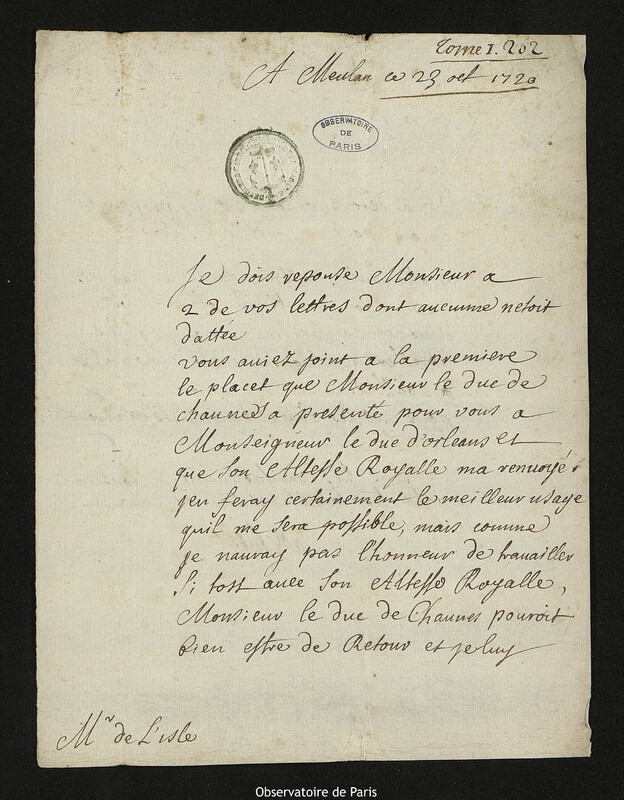 Tome I. 202
A Meulan ce 23 oct 1720
OBSERVATOIRE
DE
PARIS
Je dois reponse Monsieur a
2 de vos lettres dont aucunne netoit
dattée
vous auiez joint a la premiere
le placet que Monsieur le duc de
chaunes a presenté pour vous a
Monseigneur le duc d'orleans et
que Son Altesse Royalle ma renuoyé
jen feray certainement le meilleur usage
quil me sera possible, mais comme
je nauray pas l'honneur de trauailler
Si tost auec Son Altesse Royalle,
Monsieur le duc de Chaunes pouroit
bien estre de Retour et je luy
Mr de L'isle
Observatoire de Paris